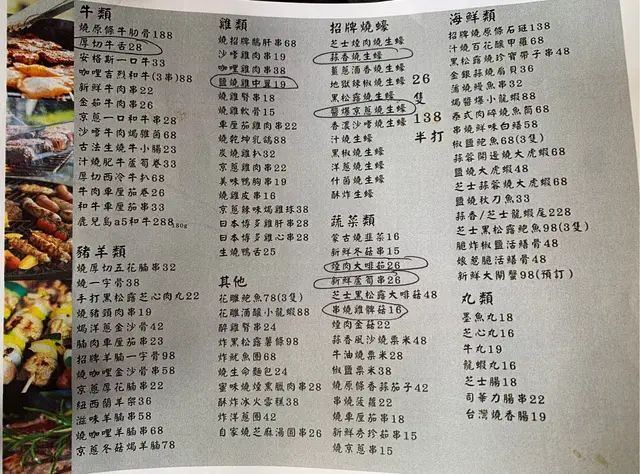 牛類
燒原條牛肋骨188
厚切牛舌28
安格斯一口牛33
咖哩吉列和牛(3串)88
新鮮牛肉串22
金菇牛肉串26
京蔥一口和牛串28
沙嗲牛肉焗雞菌68
古法生燒牛小腸23
汁燒肥牛蘆筍卷33
厚切西冷牛扒68
牛肉車厘茄卷26
和牛車厘茄串33
鹿兒島a5和牛288/80g
豬羊類
燒厚切五花腩串32
燒一字骨38
手打黑松露芝心肉丸22
燒豬頸肉串19
焗洋蔥金沙骨42
腩肉車厘茄串23
招牌羊腩一字骨98
燒咖哩金沙骨串58
京蔥厚花腩串22
紐西蘭羊架36
滋味羊腩串58
燒咖哩羊腩串68
京蔥冬菇焗羊腩78
雞類
燒招牌鵝肝串68
沙嗲雞肉串19
咖哩雞肉串38
鹽燒雞中翼19
燒雞腎串18
燒雞軟骨15
車厘茄雞肉串22
燒乾坤乳鴿88
炭燒雞扒32
京蔥雞肉串22
美味鴨胸串19
燒雞皮串16
京蔥辣味焗雞球38
日本博多雞肝串28
日本博多雞心串28
生燒鴨舌25
其他
花雕鮑魚78(3隻)
花雕酒釀小龍蝦88
醉雞腎串24
炸黑松露薯條98
炸魷魚圈68
燒生命麵包24
蜜味燒煙熏臘肉串28
酥炸冰火雪糕38
炸洋蔥圈42
自家燒芝麻湯圓串26
招牌燒蠔
芝士煙肉燒生蠔
蒜香燒生蠔
薑蔥酒香燒生蠔
地獄辣椒燒生蠔
黑松露燒生蠔
醬爆京蔥燒生蠔
香濃沙嗲燒生蠔
汁燒生蠔
黑椒燒生蠔
洋蔥燒生蠔
什菌燒生蠔
酥炸生蠔
26
隻
138
半打
蔬菜類
蒙古燒韭菜16
新鮮冬菇串15
煙肉大啡菇26
新鮮蘆筍串26
芝士黑松露大啡菇48
串燒雞髀菇16
煙肉金菇22
蒜香風沙燒粟米48
牛油燒粟米28
椒鹽粟米38
燒原條香蒜茄子42
串燒菠蘿22
燒車厘茄串18
新鮮秀珍菇串15
燒京蔥串15
海鮮類
招牌燒原條石斑138
汁燒百花釀甲羅68
黑松露燒珍寶帶子串48
金銀蒜燒扇貝36
蒲燒鰻魚串32
焗醬爆小龍蝦88
泰式肉碎燒魚筒68
串燒鮮味白鱔58
椒鹽鮑魚68(3隻)
蒜蓉開邊燒大虎蝦68
鹽燒大虎蝦48
芝士蒜蓉燒大虎蝦68
鹽燒秋刀魚33
蒜香/芝士龍蝦尾228
芝士黑松露鮑魚98(3隻)
脆炸椒鹽活鱔骨48
娘惹脆活鱔骨48
新鮮大閘蟹98(預訂)
丸類
墨魚丸18
芝心丸16
牛丸19
龍蝦丸16
芝士腸18
司華力腸串22
台灣燒香腸19